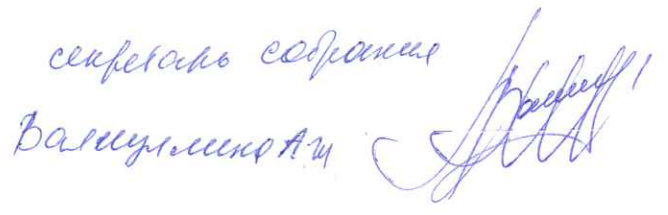 секретарь собрания
Валиуллина А Ш